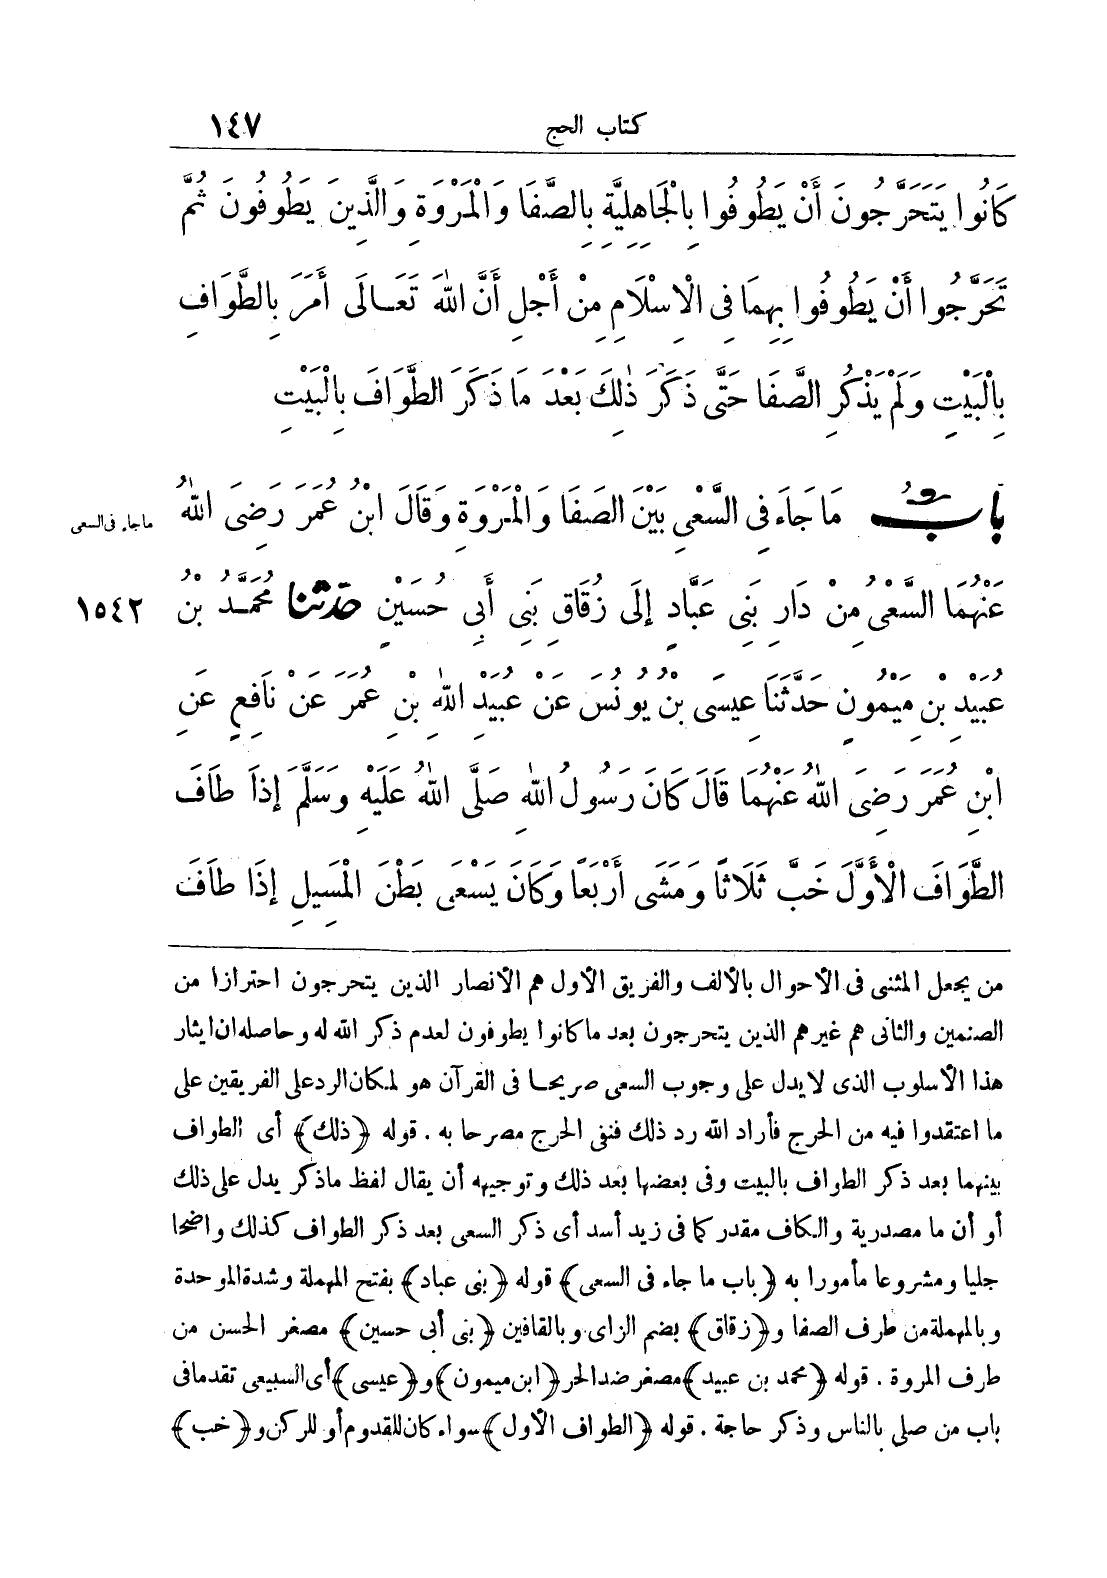 كتاب الحج ١٤٧
كَانُوا يَتَحَرَّجُونَ أَنْ يَطُوفُوا بِالْجَاهِلِيَّةِ بِالصَّفَا وَالْمَرْوَةِ وَالَّذِينَ يَطُوفُونَ ثُمَّ
تَحَرَّجُوا أَنْ يَطُوفُوا بِهِمَا فِى الْاِسْلَامِ مِنْ أَجْلِ أَنَّ اللهَ تَعَالَى أَمَرَ بِالطَّوَافِ
بِالْبَيْتِ وَلَمْ يَذْكُرِ الصَّفَا حَتَّى ذَكَرَ ذٰلِكَ بَعْدَ مَا ذَكَرَ الطَّوَافَ بِالْبَيْتِ
بابُ مَا جَاءَ فِى السَّعْىِ بَيْنَ الصَفَا وَالْمَرْوَةِ وَقَالَ ابْنُ عُمَرَ رَضِىَ اللهُ
ماجاء فى السعى
عَنْهُمَا السَّعْىُ مِنْ دَارِ بَنِى عَبَّادٍ إِلَى زُقَاقِ بَنِى أَبِى حُسَيْنٍ حدّثنا مُحَمَّدُ بْنُ
١٥٤٢
عُبَيْدِ بْنِ مَيْمُونٍ حَدَّثَنَا عِيسَى بْنُ يُونُسَ عَنْ عُبَيْدِ اللهِ بْنِ عُمَرَ عَنْ نَافِعٍ عَنِ
ابْنِ عُمَرَ رَضِىَ اللهُ عَنْهُمَا قَالَ كَانَ رَسُولُ اللهِ صَلَّى اللهُ عَلَيْهِ وَسَلَّمَ إِذَا طَافَ
الطَّوَافَ الْأَوَّلَ خَبَّ ثَلَاثًا وَمَشَى أَرْبَعًا وَكَانَ يَسْعَى بَطْنَ الْمَسِيلِ إِذَا طَافَ
من يجعل المثنى فى الأحوال بالألف والفريق الأول هم الأنصار الذين يتحرجون احترازا من
الصنمين والثانى هم غيرهم الذين يتحرجون بعد ما كانوا يطوفون لعدم ذكر الله له وحاصله ان ايثار
هذا الأسلوب الذى لا يدل على وجوب السعى صريحا فى القرآن هو لمكان الرد على الفريقين على
ما اعتقدوا فيه من الحرج فأراد الله رد ذلك فنفى الحرج مصرحا به . قوله ﴿ذلك﴾ أى الطواف
بينهما بعد ذكر الطواف بالبيت وفى بعضها بعد ذلك وتوجيهه أن يقال لفظ ماذكر يدل على ذلك
أو أن ما مصدرية والكاف مقدر كما فى زيد أسد أى ذكر السعى بعد ذكر الطواف كذلك واضحا
جليا ومشروعا مأمورا به ﴿باب ما جاء فى السعى﴾ قوله ﴿بنى عباد﴾ بفتح المهملة وشدة الموحدة
وبالمهملة من طرف الصفا و﴿زقاق﴾ بضم الزاى وبالقافين ﴿بنى أبى حسين﴾ مصغر الحسن من
طرف المروة . قوله ﴿محمد بن عبيد﴾ مصغر ضد الحر ﴿ابن ميمون﴾ و﴿عيسى﴾ أى السبيعى تقدما فى
باب من صلى بالناس وذكر حاجة . قوله ﴿الطواف الأول﴾ سواء كان للقدوم أو للركن و﴿خب﴾